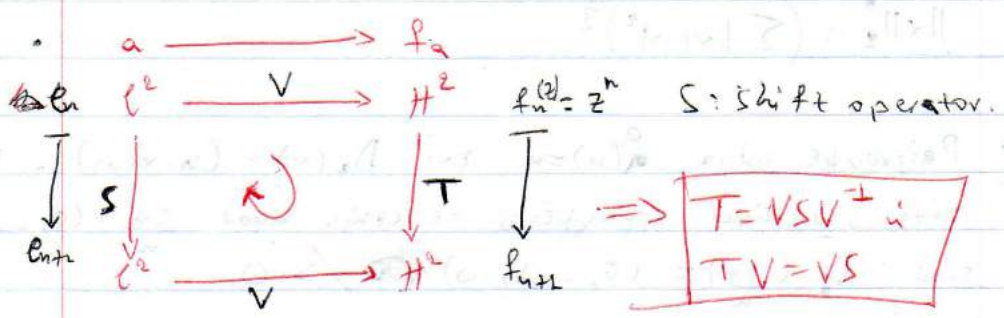 a → f_a
e_n ℓ² V → H² f_n(z) = z^n S: Shift operator.
S T ⇒ T = VSV⁻¹ ή
e_{n+1} ℓ² V → H² f_{n+1} TV = VS